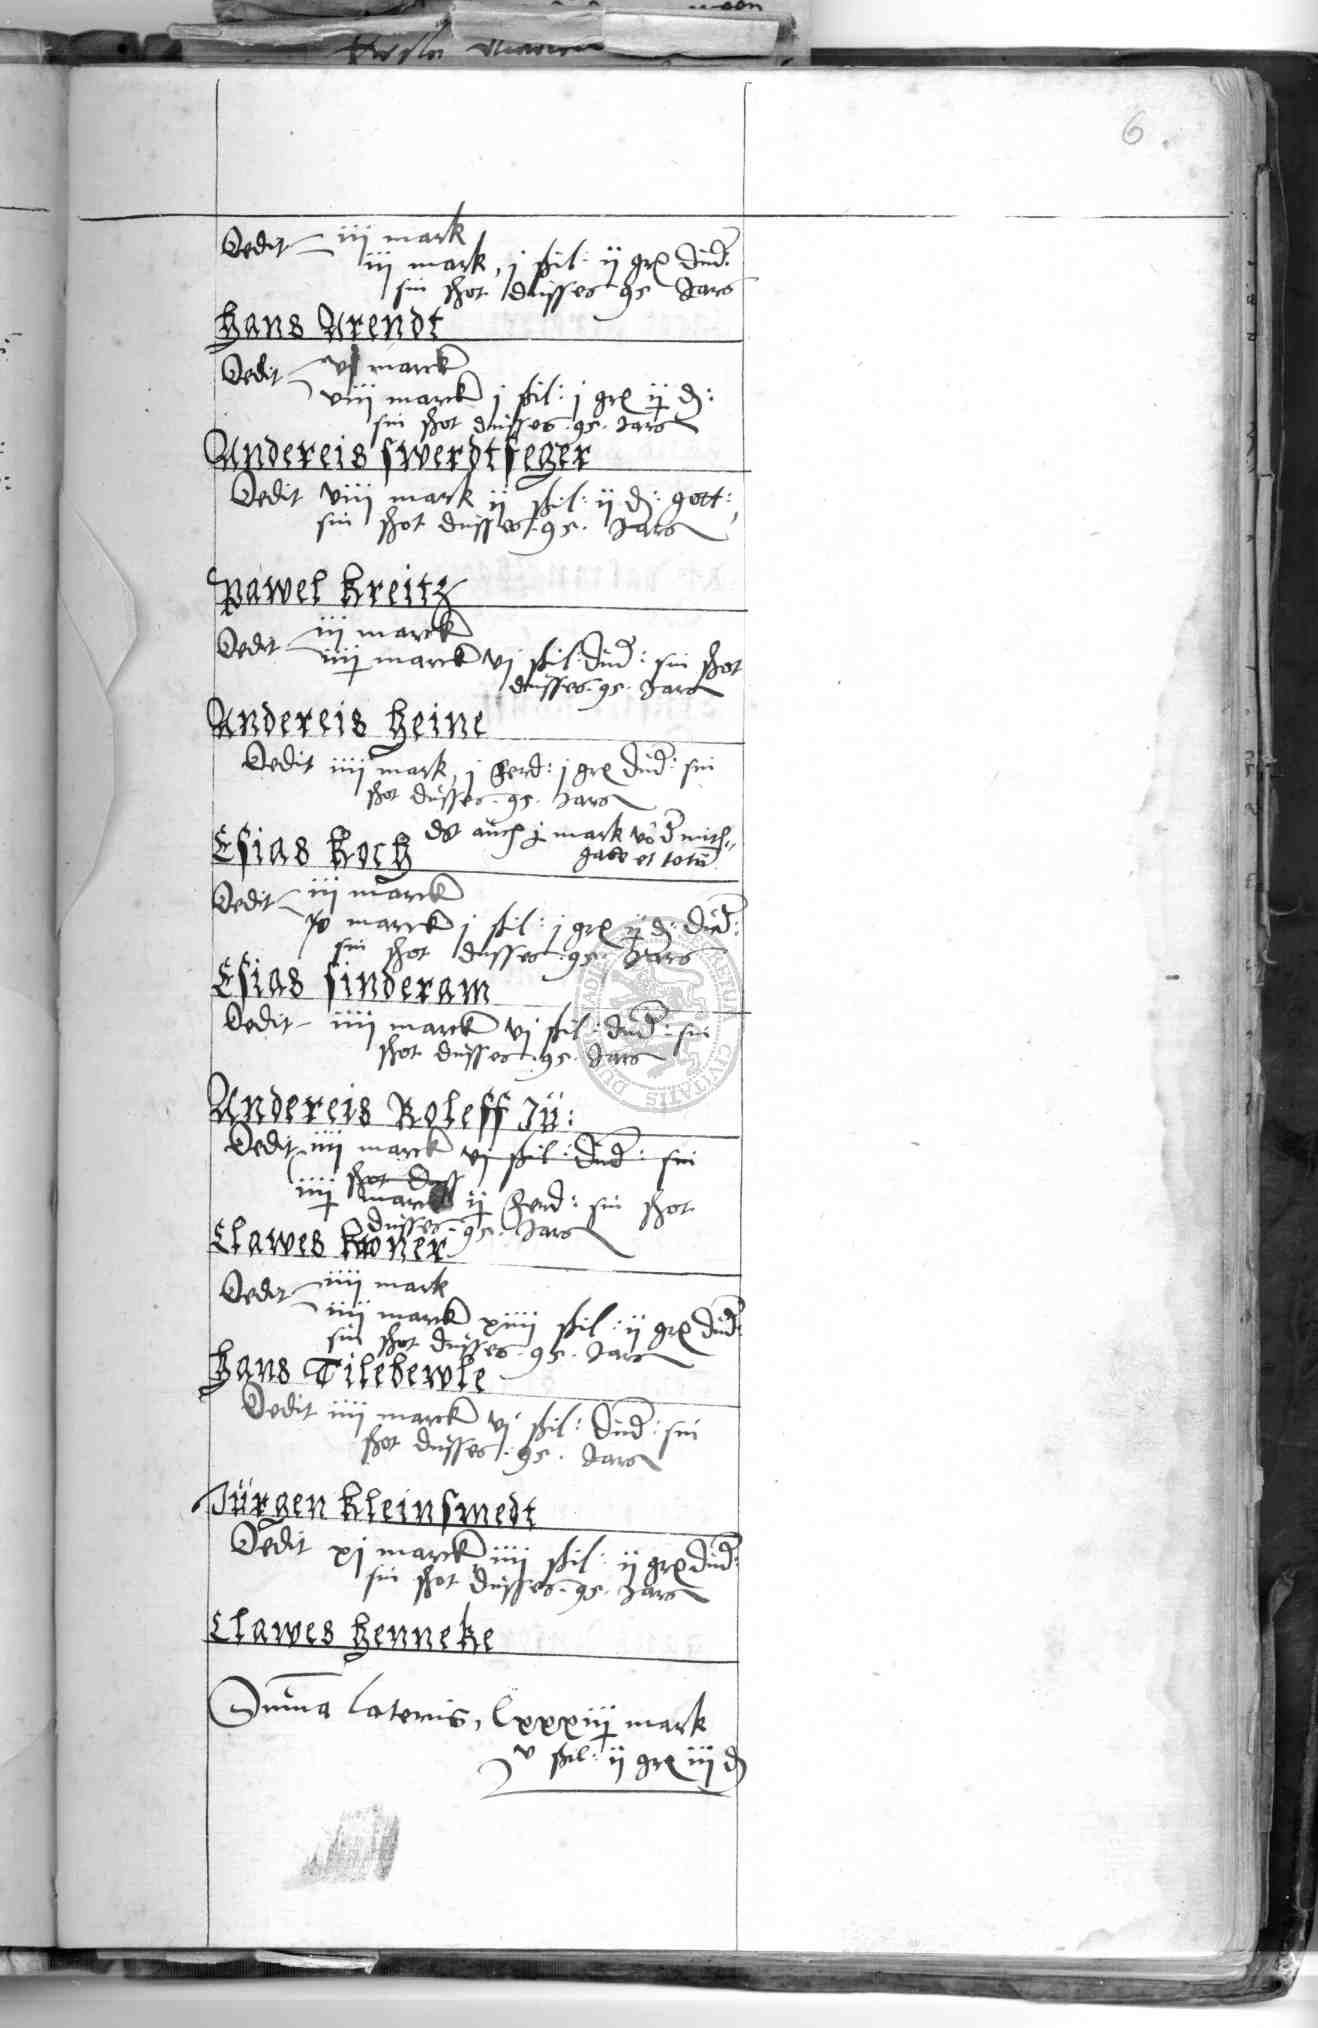 6
Dedit iij mark
iij mark, j ßil: ij grℓ Dud:
sin shot dusses 95 Jars
Hans Arendt
Dedit vj marck
viij marck j ßil: j grℓ ij ₰:
sin shot dusses .95. Jars
Andereis Swerdtfeger
Dedit viij mark ij ßil: ij ₰: gott:
sin shot dusses .95. Jars
Pawel Kreitz
Dedit iij marck
iiij marck vj ßil: Dud: sin shot
dusses .95. Jars
Andereis Heine
Dedit iiij mark, j Ferd: j grℓ Dud: sin
shot dusses .95. Jars
auch mark
Esias Koch
et totū
Dedit iij marck
marck j ßil: j grℓ ij ₰: Dud:
sin shot dusses .95. Jars
Esias Sinderam
Dedit iiij marck vj ßil: Dud: sin
shot dusses .95. Jars
Andereis Roleff Jü:
Dedit iiij marck vj ßil: Dud: sin
shot duss
iiij marck ij Ferd: sin shot
dusses .95. Jars
Clawes Koner
Dedit iiij mark
iiij marck xiiij ßil: ij grℓ Dud:
sin shot dusses .95. Jars
Hans Tilebewle
Dedit iiij marck vj ßil: Dud: sin
shot dusses .95. Jars
Jürgen Kleinsmedt
Dedit xj marck iiij ßil: ij grℓ Dud:
sin shot dusses .95. Jars
Clawes Henneke
Suma lateris, lxxxiij mark
v ßil: ij grℓ iij ₰
CIVITATIS